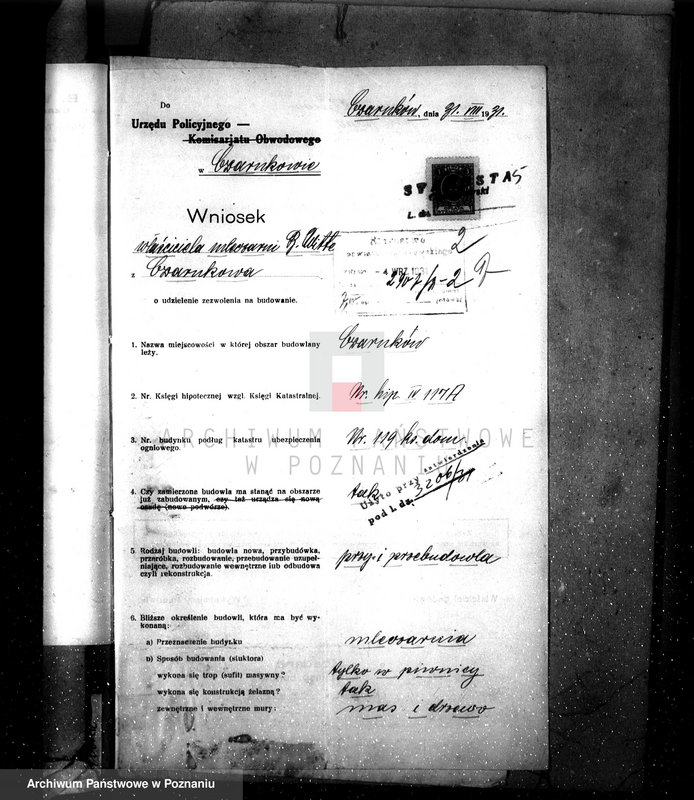 Do
Urzędu Policyjnego —
Komisarjatu Obwodowego
w Czarnkowie
Czarnków, dnia 31. VIII 1931.
STAROSTA
L. dz.
Wniosek
właściciela mleczarni R. Witte
z Czarnkowa
2
4 WRZ 1931
o udzielenie zezwolenia na budowanie.
1. Nazwa miejscowości w której obszar budowlany
leży.
Czarnków
2. Nr. Księgi hipotecznej wzgl. Księgi Katastralnej.
Nr. hip. IV 117A
3. Nr. budynku podług katastru ubezpieczenia
ogniowego.
Nr. 119 ks. dom
4. Czy zamierzona budowla ma stanąć na obszarze
już zabudowanym, czy też urządza się nową
osadę (nowe podwórze).
tak
Użyto przy zatwierdzeniu
pod L. dz. 3206/31
5. Rodzaj budowli: budowla nowa, przybudówka,
przeróbka, rozbudowanie, przebudowanie uzupeł-
niające, rozbudowanie wewnętrzne lub odbudowa
czyli rekonstrukcja.
przy- i przebudowla
6. Bliższe określenie budowli, która ma być wy-
konaną:
a) Przeznaczenie budynku
mleczarnia
b) Sposób budowania (stuktora)
wykona się trop (sufit) masywny?
tylko w piwnicy
wykona się konstrukcją żelazną?
tak
zewnętrzne i wewnętrzne mury:
mas i drzewo
ARCHIWUM PAŃSTWOWE
W POZNANIU
Archiwum Państwowe w Poznaniu